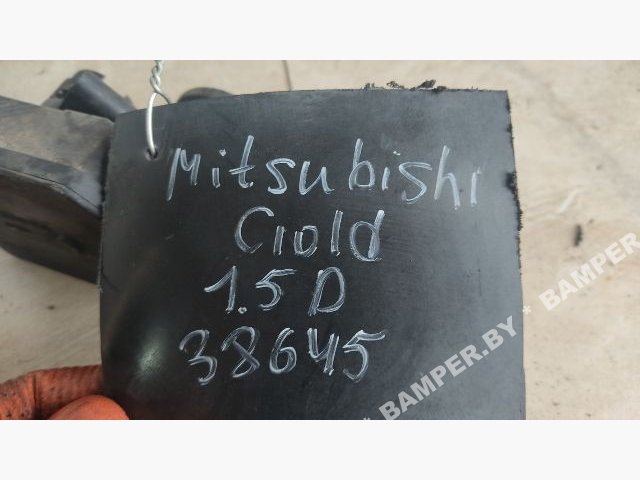 Mitsubishi
Ciold
1.5 D
38645
* BAMPER.BY * BAMPER.